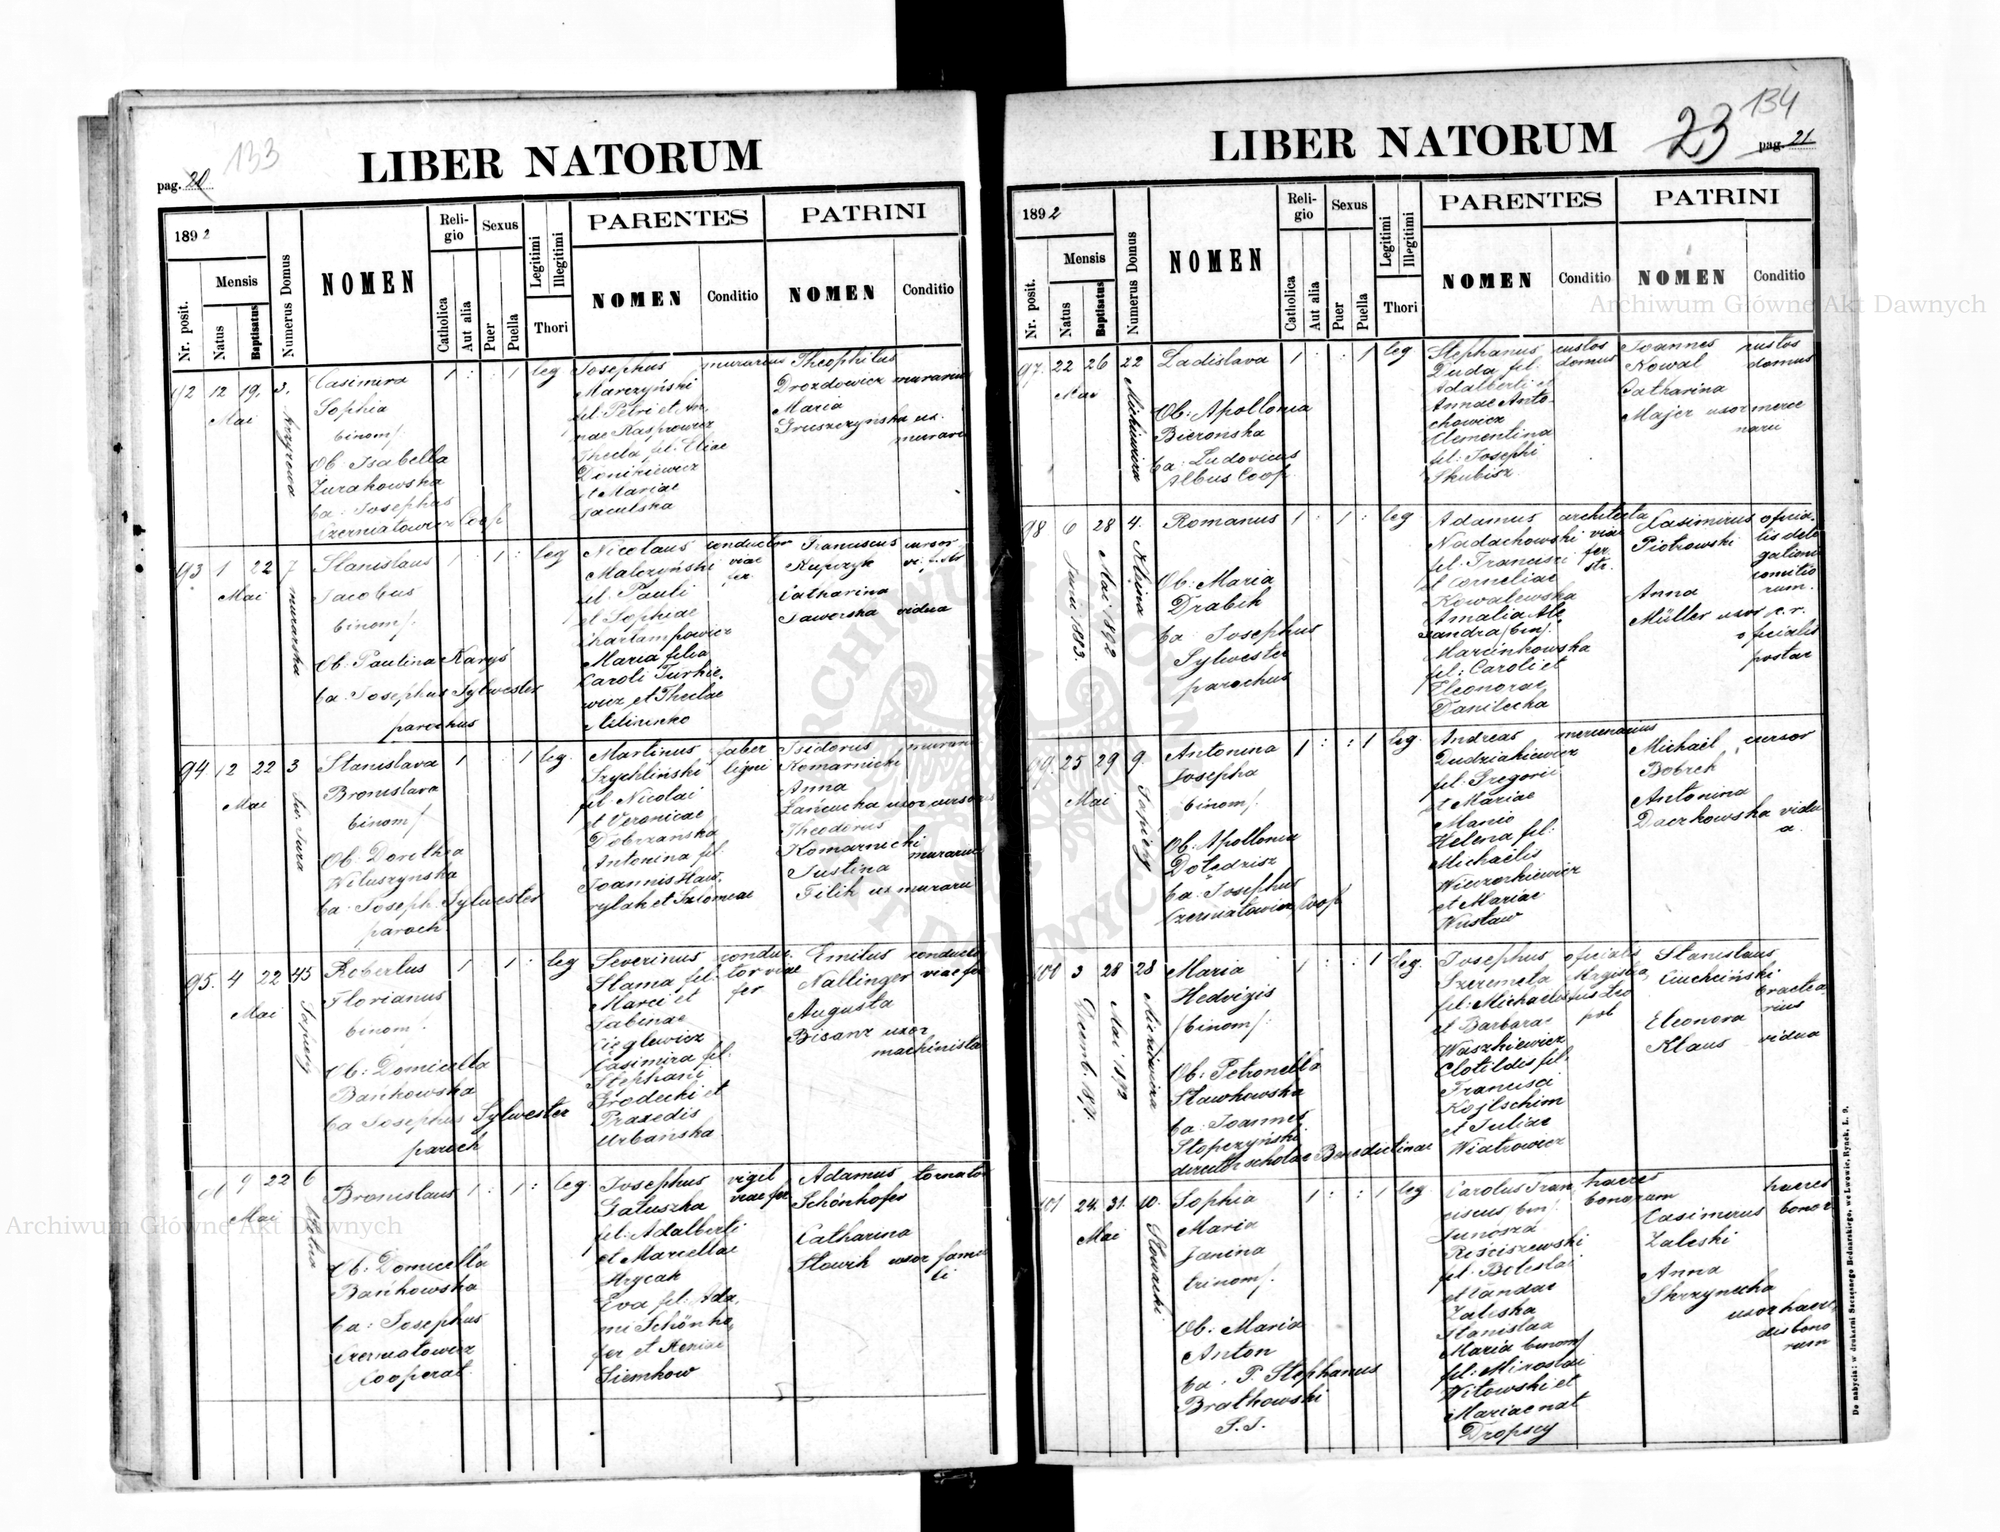 133
LIBER NATORUM
pag. 20
1892
Nr. posit.
Mensis
Natus
Baptisatus
Numerus Domus
NOMEN
Religio
Catholica
Aut alia
Sexus
Puer
Puella
Legitimi
Illegitimi
Thori
PARENTES
NOMEN
Conditio
PATRINI
NOMEN
Conditio
92 12 19. 3.
Mai
Casimira
Sophia
binom/.
Ob: Isabella
Żurakowska
ba: Josephus
Czerniatowicz Coop
1 : : 1 leg
Josephus murarius
Marczyński
fil: Petri et An
nae Kasprowicz
Thecla fil: Eliae
et Mariae
Theophilus
Drozdowicz murarius
Maria
Gruszczyńska ux.
murarii
93 1 22 7
Mai
murarska
Stanislaus
Jacobus
binom/.
Ob: Paulina Karyś
ba: Josephus Sylwester
parochus
1 : 1 : leg
Nicolaus conductor
Malczyński viae
fil: Pauli fer.
et Sophiae
Charłampowicz
Maria filia
Caroli Turkie-
wicz et Theclae
Franciscus cursor
Kupczyk
Catharina
Jaworska vidua
94 12 22 3
Mai
Stanislava
Bronislava
binom/.
Ob: Dorothea
Wituszynska
ba: Joseph. Sylwester
paroch.
1 1 leg.
Martinus faber
Szychliński ligni
fil: Nicolai
et Veronicae
Dobrzańska
Antonina fil
Joannis Haw-
rylak et Salomeae
Isidorus murari
Komarnicki
Anna
Łańcucka uxor cursoris
Theodorus
Komarnicki murarius
Justina
Filik ux murarii
95. 4 22 43
Mai
Sapiehy
Robertus
Florianus
binom/.
Ob: Domicella
Bańkowska
ba Josephus Sylwester
paroch
1 : 1 : leg
Severinus conduc-
Słama fil: tor viae
Marci et fer
Sabinae
Cięglewicz
Casimira fil:
Stephani
Grodecki et
Praxedis
Urbańska
Emilus conducto
Nallinger viae fer
Augusta
Bisanz uxor
machinista
9 22 6
Mai
Bronislaus
Ob: Domicella
Bańkowska
ba: Josephus
Czerniatowicz
Cooperat.
1 : 1 : leg
Josephus vigil
Gałuszka viae fer
fil: Adalberti
et Marcellae
Hrycak
Eva fil: Ada-
mi Schönho-
fer et Xeniae
Siemkow
Adamus tornator
Schönhofer
Catharina
Słowik uxor famu
li
134
23
LIBER NATORUM
pag. 21
1892
Nr. posit.
Mensis
Natus
Baptisatus
Numerus Domus
NOMEN
Religio
Catholica
Aut alia
Sexus
Puer
Puella
Legitimi
Illegitimi
Thori
PARENTES
NOMEN
Conditio
PATRINI
NOMEN
Conditio
97. 22 26 22
Mai
Mickiewicza
Ladislava
Ob: Apollonia
Bierońska
ba: Ludovicus
Albus Coop.
1 : : 1 leg
Stephanus custos
Duda fil: domus
Adalberti et
Annae Anto-
chowicz
Clementina
fil: Josephi
Skubisz
Joannes custos
Kowal domus
Catharina
Majer uxor merce
narii
98 6 28 4.
Junii 1883.
Mai 1892
Kleina
Romanus
Ob: Maria
Drabik
ba Josephus
Sylwester
parochus
1 : 1 : leg
Adamus architecta
Nadachowski viae
fil: Francisci fer.
et Corneliae str.
Kowalewska
Amalia Ale
xandra /bin/.
Marynkowska
fil: Caroli et
Eleonorae
Danilecka
Casimirus oficia-
Piotrowski lis dele
gationis
comitio
Anna rum.
Müller uxor c. r.
oficialis
postae
99. 25 29 9.
Mai
Sapiehy
Antonina
Josepha
binom/.
Ob: Apollonia
Dołędzisz
ba: Josephus
Czerniatowicz Coop
1 : : 1 leg.
Andreas mercenarius
Dudziakiewicz
fil: Gregorii
et Mariae
Manio
Helena fil:
Michaëlis
Wieczorkiewicz
et Mariae
Wusław
Michaël cursor
Bobrek
Antonina
Daczkowska vidu
a.
100 3 28 28
Decemb. 1891.
Mai 1892
Mickiewicza
Maria
Hedvigis
/binom/:
Ob: Petronella
Sławkowska
ba: Joannes
Stopczyński
director scholae Benedictinae
1 : : 1 leg.
Josephus oficialis
Szeremeta Magistra
fil: Michaelis tus Leo
et Barbarae pol
Waszkiewicz
Clotildis fil.
Francisci
Kojtschim
et Juliae
Wiatrowicz
Stanislaus
Ciuchciński bractea-
rius
Eleonora
Klaus vidua
101 24. 31. 10.
Mai
Słowacki
Sophia
Maria
Janina
trinom/.
Ob: Maria
Anton
ba: P. Stephanus
Bratkowski
S. J.
1 : : 1 leg
Carolus Fran haeres
ciscus bin/. bonorum
Junosza
Rościszewski
fil: Boleslai
et Vandae
Zaleska
Stanislaa
Maria binom/
fil: Miroslai
Witowski et
Mariae nat
Dropsey
haeres
Casimirus bonor
Zaleski
Anna
Skrzynecka
uxor haere
dis bono
rum
Do nabycia: w drukarni Szczęsnego Bednarskiego, we Lwowie, Rynek, L. 9.
Archiwum Główne Akt Dawnych
Archiwum Główne Akt Dawnych
ARCHIWUM GŁÓWNE AKT DAWNYCH